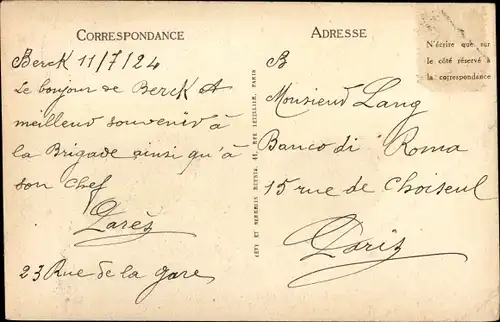 CORRESPONDANCE
Berck 11/7/24
Le bonjour de Berck et
meilleur souvenir à
la Brigade ainsi qu'à
son chef
23 Rue de la gare
LÉVY ET NEURDEIN RÉUNIS, 44, RUE LETELLIER, PARIS
ADRESSE
N'écrire que sur
le côté réservé à
la correspondance
Monsieur Lang
Banco di Roma
15 rue de Choiseul
Paris